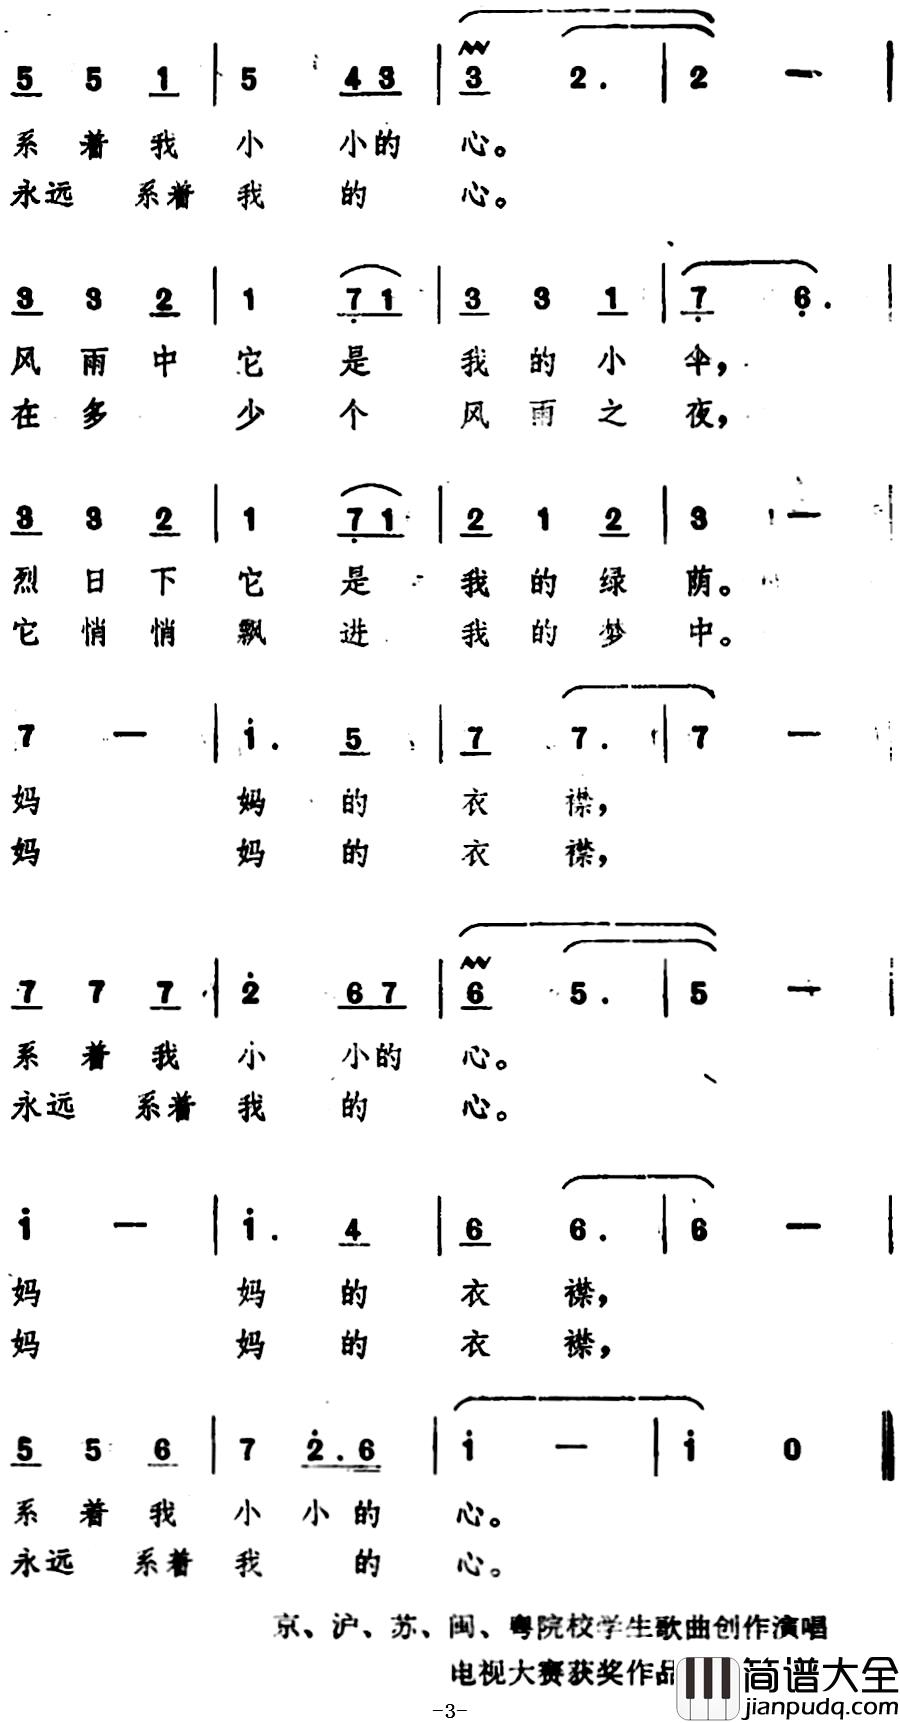 5 5 1 | 5 4 3 | 3 2. | 2 — |
系着我小小的心。
永远系着我的心。
3 3 2 | 1 7 1 | 3 3 1 | 7 6. |
风雨中它是我的小伞，
在多少个风雨之夜，
3 3 2 | 1 7 1 | 2 1 2 | 3 — |
烈日下它是我的绿荫。
它悄悄飘进我的梦中。
7 — | 1. 5 | 7 7. | 7 — |
妈妈的衣襟，
妈妈的衣襟，
7 7 7 | 2 6 7 | 6 5. | 5 — |
系着我小小的心。
永远系着我的心。
1 — | 1. 4 | 6 6. | 6 — |
妈妈的衣襟，
妈妈的衣襟，
5 5 6 | 7 2. 6 | 1 — | 1 0 ‖
系着我小小的心。
永远系着我的心。
京、沪、苏、闽、粤院校学生歌曲创作演唱
电视大赛获奖作品
简谱大全
jianpudq.com
-3-